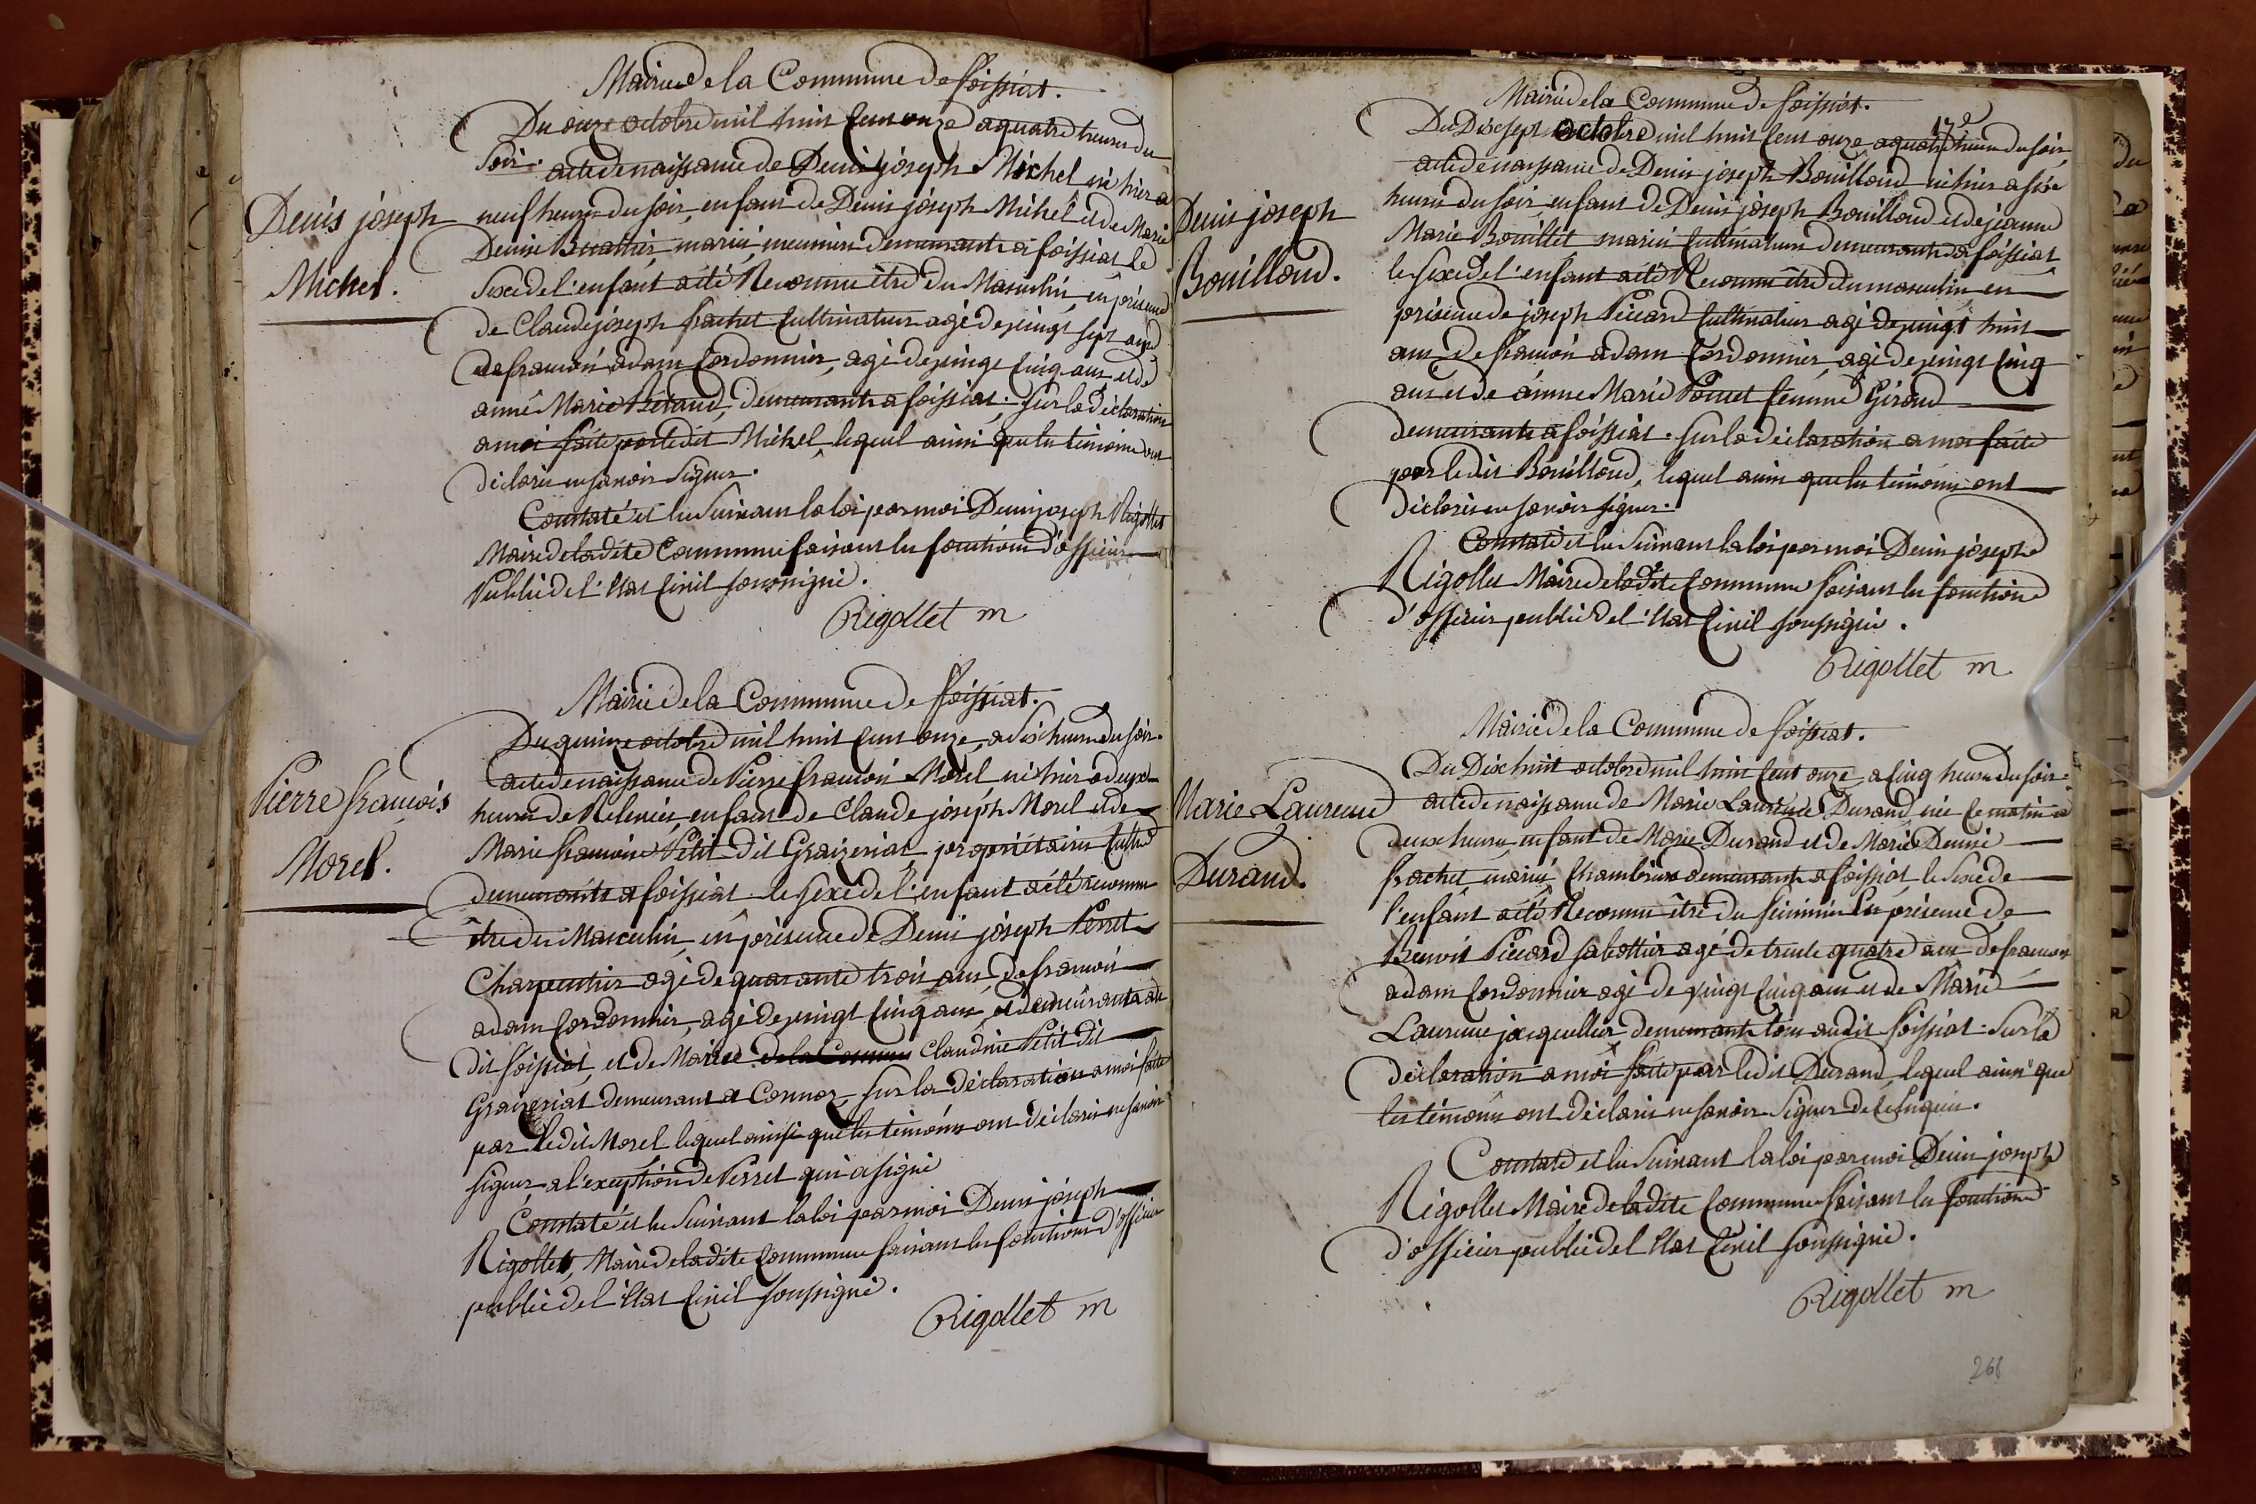 Mairie de la Commune de foissiat.
Du onze octobre mil huit Cent onze a quatre heures du
Soir. acte de naissance de Denis joseph Michel né hier a
neuf heures du soir, enfant de Denis joseph Michel et de Marie
Denis joseph
Denise mariés, meunier demeurants a foissiat le
Michel.
Sexe de l'enfant a été Reconnu être du Masculin, en présence
de Claude joseph frachet Cultivateur agé de vingt sept ans
de françois adam Cordonnier, agé de vingt Cinq ans et de
anne Marie demeurants a foissiat. sur la déclaration
a moi faite par le dit Michel, lequel ainsi que les témoins ont
déclaré ne savoir Signer.
Constaté et lu Suivant la loi par moi Denis joseph Rigollet
Maire de la dite Commune faisant les fonctions d'officier
Public de l'Etat Civil soussigné.
Rigollet m
Mairie de la Commune de foissiat.
Du quinze octobre mil huit Cent onze, a Six heures du soir.
acte de naissance de Pierre françois Morel né hier a deux
Pierre françois
heures de Relevée, enfant de Claude joseph Morel et de
Marie françoise Petit dit Graizeriat, propriétaires
Morel.
demeurants a foissiat le sexe de l'enfant a été reconnu
être du Masculin, en présence de Denis joseph Perret
Charpentier agé de quarante trois ans, de françois
adam Cordonnier, agé de vingt Cinq ans, et demeurants au
dit foissiat, et de Marie de la Commune Claudine Petit dit
Graizeriat demeurant a Connor, sur la déclaration a moi faite
par le dit Morel lequel ainsi que les témoins ont déclaré ne savoir
signer a l'exception de Perret qui a signé
Constaté et lu Suivant la loi par moi Denis joseph
Rigollet, Maire de la dite Commune faisant les fonctions d'officier
public de l'Etat Civil soussigné.
Rigollet m
Mairie de la Commune de foissiat.
17
Du Dix sept octobre mil huit Cent onze a quatre heures du soir
acte de naissance de Denis joseph Bouilloud né hier a six
heures du soir, enfant de Denis joseph Bouilloud et de jeanne
Denis joseph
Marie Bouillet mariés Cultivateurs demeurants a foissiat
Bouilloud.
le sexe de l'enfant a été Reconnu être du masculin en
présence de joseph Piccard Cultivateur agé de vingt huit
ans de françois adam Cordonnier, agé de vingt Cinq
ans et de anne Marie Poncet femme Giroud
demeurants a foissiat. sur la déclaration a moi faite
par le dit Bouilloud, lequel ainsi que les témoins ont
déclaré ne savoir signer.
Constaté et lu Suivant la loi par moi Denis joseph
Rigollet Maire de la dite Commune faisant les fonctions
d'officier public de l'Etat Civil soussigné.
Rigollet m
Mairie de la Commune de foissiat.
Du Dix huit octobre mil huit Cent onze a Cinq heures du soir.
acte de naissance de Marie Laurence Durand, née Ce matin a
Marie Laurence
deux heures, enfant de Marie Durand et de Marie Denise
Durand.
frachet, mariés, demeurants a foissiat, le Sexe de
l'enfant a été Reconnu être du féminin En présence de
Benoit Piccard sabottier agé de trente quatre ans de françois
adam Cordonnier agé de vingt Cinq ans et de Marie
Laurence demeurants tous au dit foissiat. Sur la
déclaration a moi faite par le dit Durand, lequel ainsi que
les témoins ont déclaré ne savoir Signer de Ce Enquis.
Constaté et lu Suivant la loi par moi Denis joseph
Rigollet Maire de la dite Commune faisant les fonctions
d'officier public de l'Etat Civil soussigné.
Rigollet m